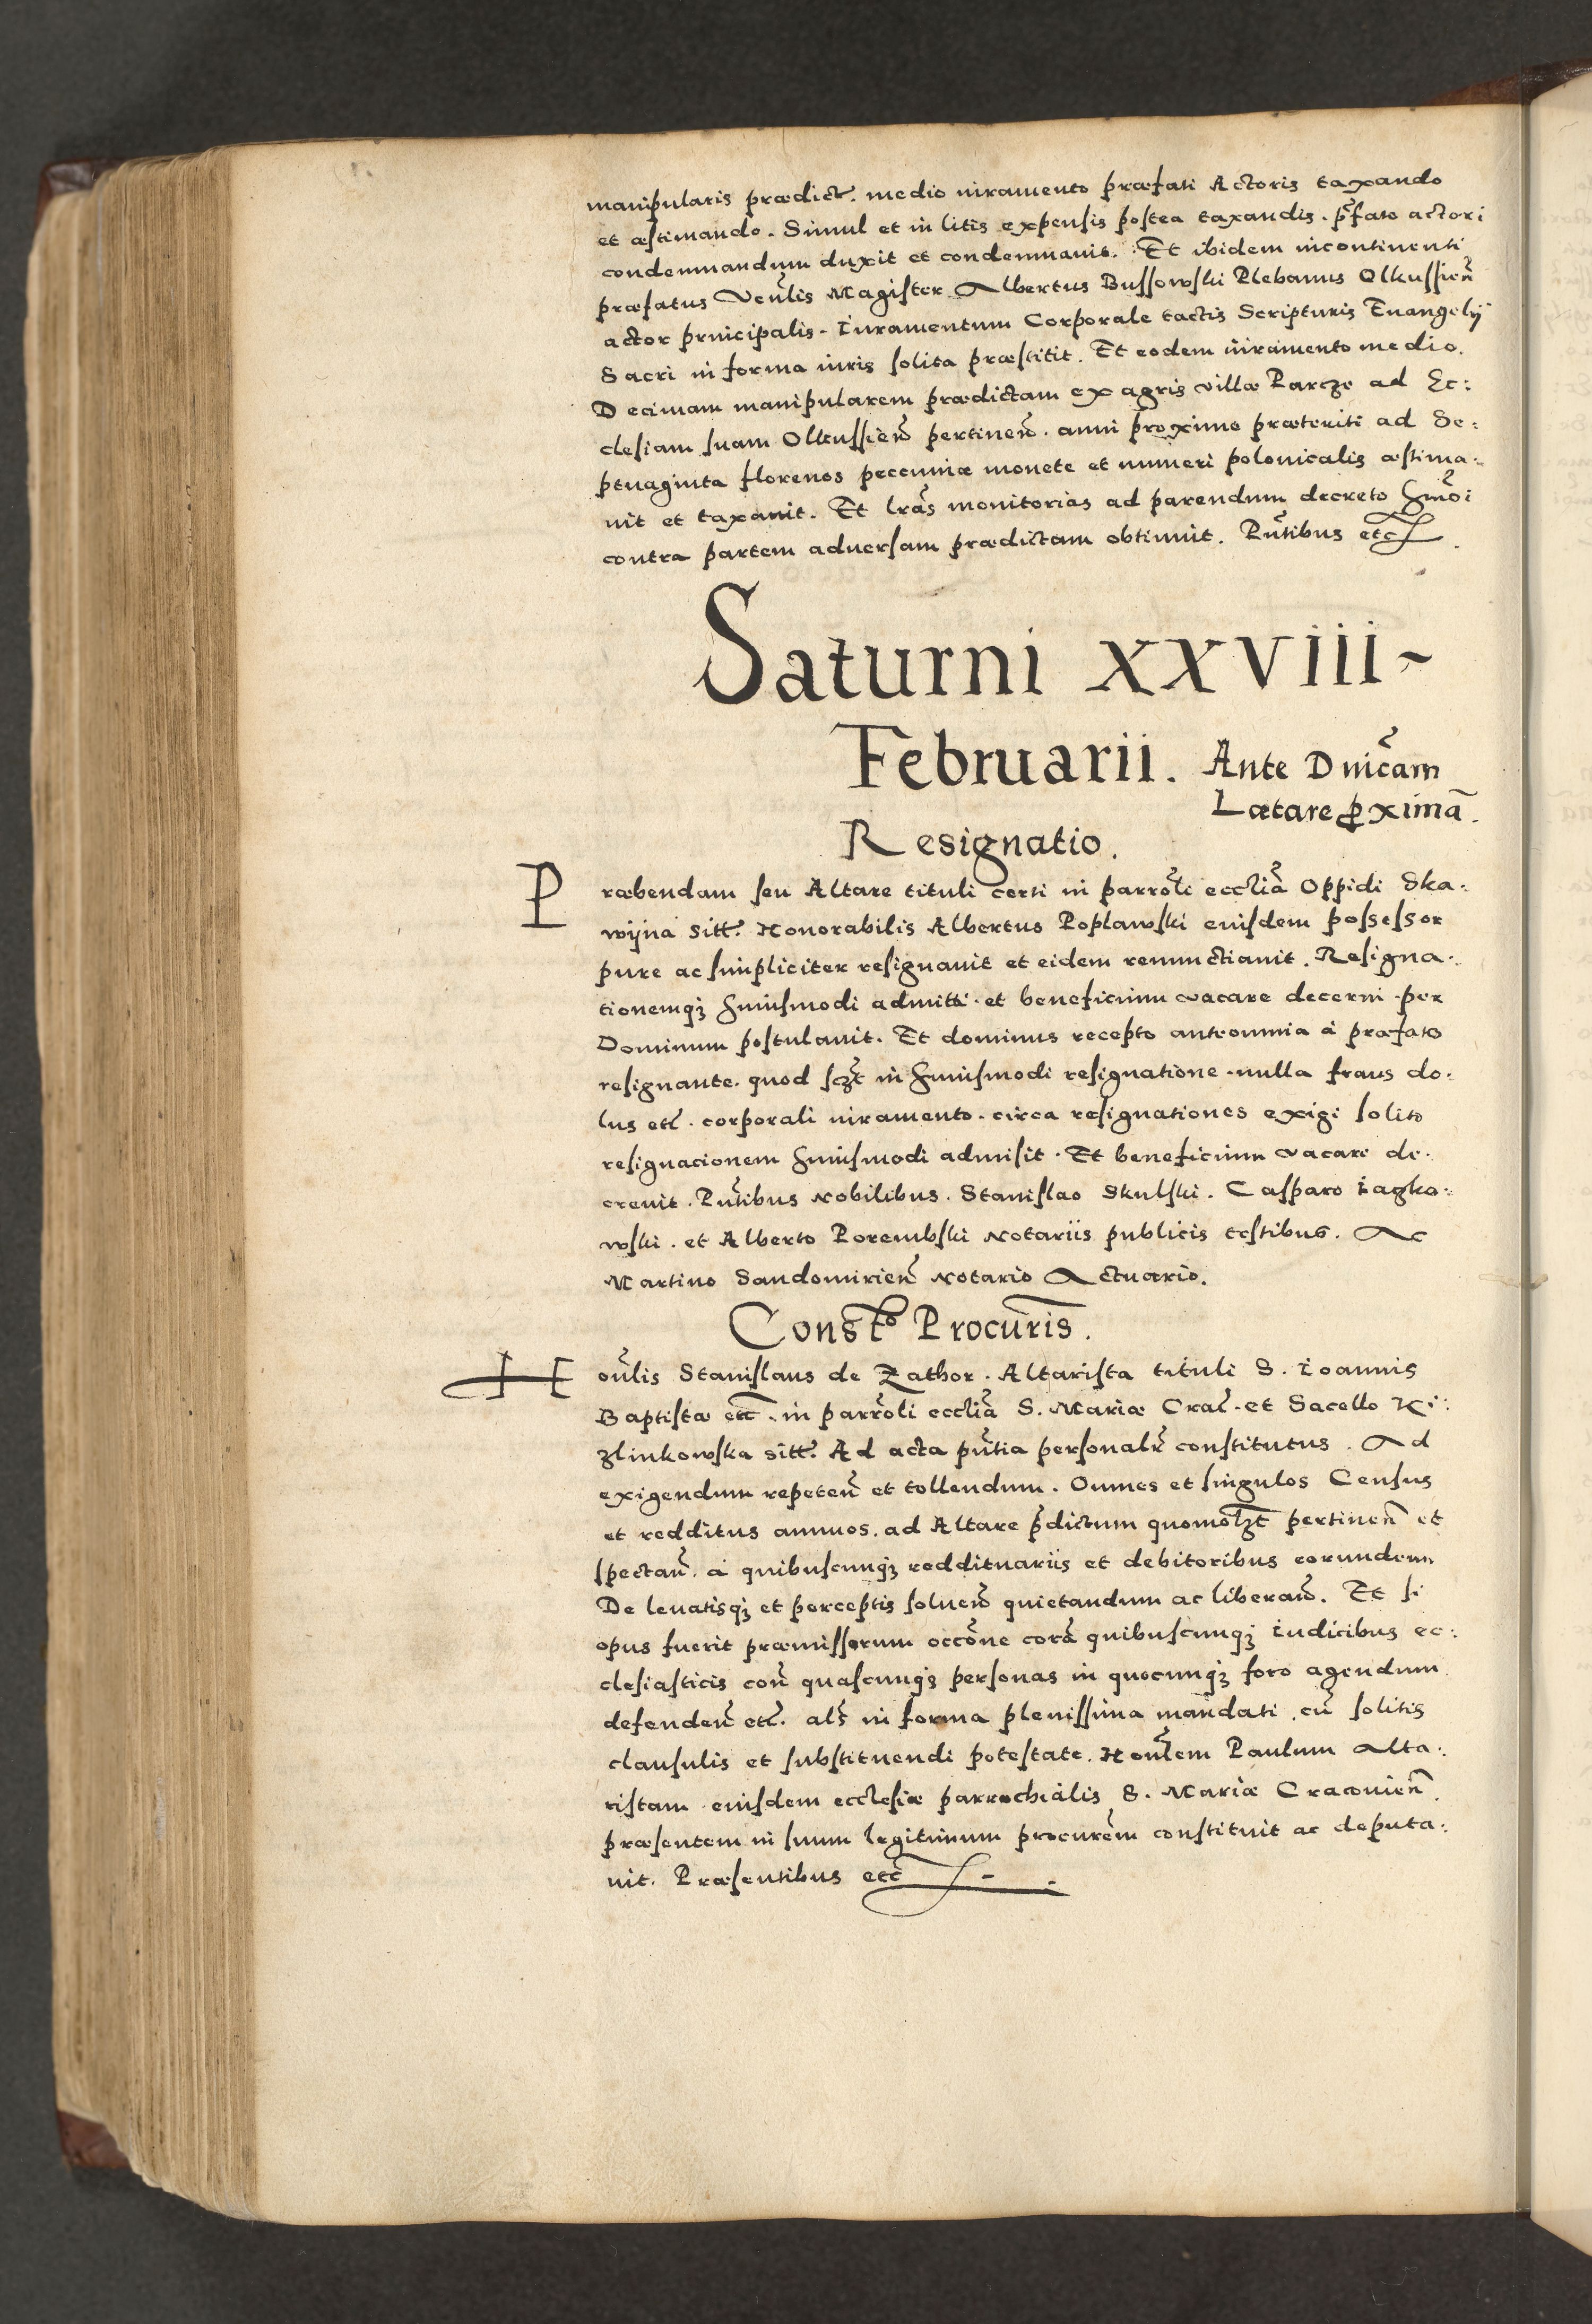 manipularis prædict̃. medio iuramento præfati Actoris taxando
et æstimando. Simul et in litis expensis postea taxandis. p̃fato actori
condemnandum duxit et condemnauit. Et ibidem incontinenti
præfatus Veñlis Magister Albertus Bussowski Plebanus Olkussień
actor principalis. Iuramentum Corporale tactis Scripturis Euangelij
Sacri in forma iuris solita præstitit. Et eodem iuramento medio.
Decimam manipularem prædictam ex agris villæ Parcze ad Ec:
clesiam suam Olkussień pertineñ. anni proxime præteriti ad Se:
ptuaginta florenos pecuniæ monete et numeri polonicalis æstima:
uit et taxauit. Et lr̃as monitorias ad parendum decreto hm̃oi
contra partem aduersam prædictam obtinuit. Pñtibus etc̃
Saturni xxviii~
Februarii. Ante Dnic̃am
Lætare ꝓximā.
Resignatio.
Præbendam seu Altare tituli certi in parrol̃i eccliã Oppidi Ska:
wijna sitt̃. Honorabilis Albertus Poplawski eiusdem possessor
pure ac simpliciter resignauit et eidem renunctiauit. Resigna:
tionemqȝ huiusmodi admitti et beneficium vacare decerni per
Dominum postulauit. Et dominus recepto ante omnia à præfato
resignante. quod scȝt in huiusmodi resignatione nulla fraus do:
lus etc̃. corporali iuramento. circa resignationes exigi solito
resignacionem huiusmodi admisit. Et beneficium vacare de:
creuit. Pñtibus Nobilibus. Stanislao Skulski. Casparo Iagko:
wski. et Alberto Porembski Notariis publicis testibus. Ac
Martino Sandomirień Notario Actuario.
Const̃o Procur̃is.
Hoñlis Stanislaus de Zathor. Altarista tituli S. Ioannis
Baptistæ etc̃. in parrol̃i eccliã S. Mariæ Crac̃. et Sacello Ki:
zlinkowska sitt̃. Ad acta pñtia personalr̃ constitutus. Ad
exigendum repeteñ et tollendum. Omnes et singulos Census
et redditus annuos. ad Altare p̃dictum quomol̃ȝt pertineñ et
spectañ. à quibuscunqȝ reddituariis et debitoribus eorundem
De leuatisqȝ et perceptis solueñ quietandum ac liberañ. Et si
opus fuerit præmissorum occõne corã quibuscunqȝ Iudicibus ec:
clesiasticis coñ quascunqȝ personas in quocunqȝ foro agendum
defendeñ etc̃. als̃ in forma plenissima mandati. cũ solitis
clausulis et substituendi potestate. Hoñlem Paulum Alta:
ristam eiusdem ecclesiæ parrochialis S. Mariæ Cracouień.
præsentem in suum legitimum procur̃em constituit ac deputa:
uit. Præsentibus etc̃